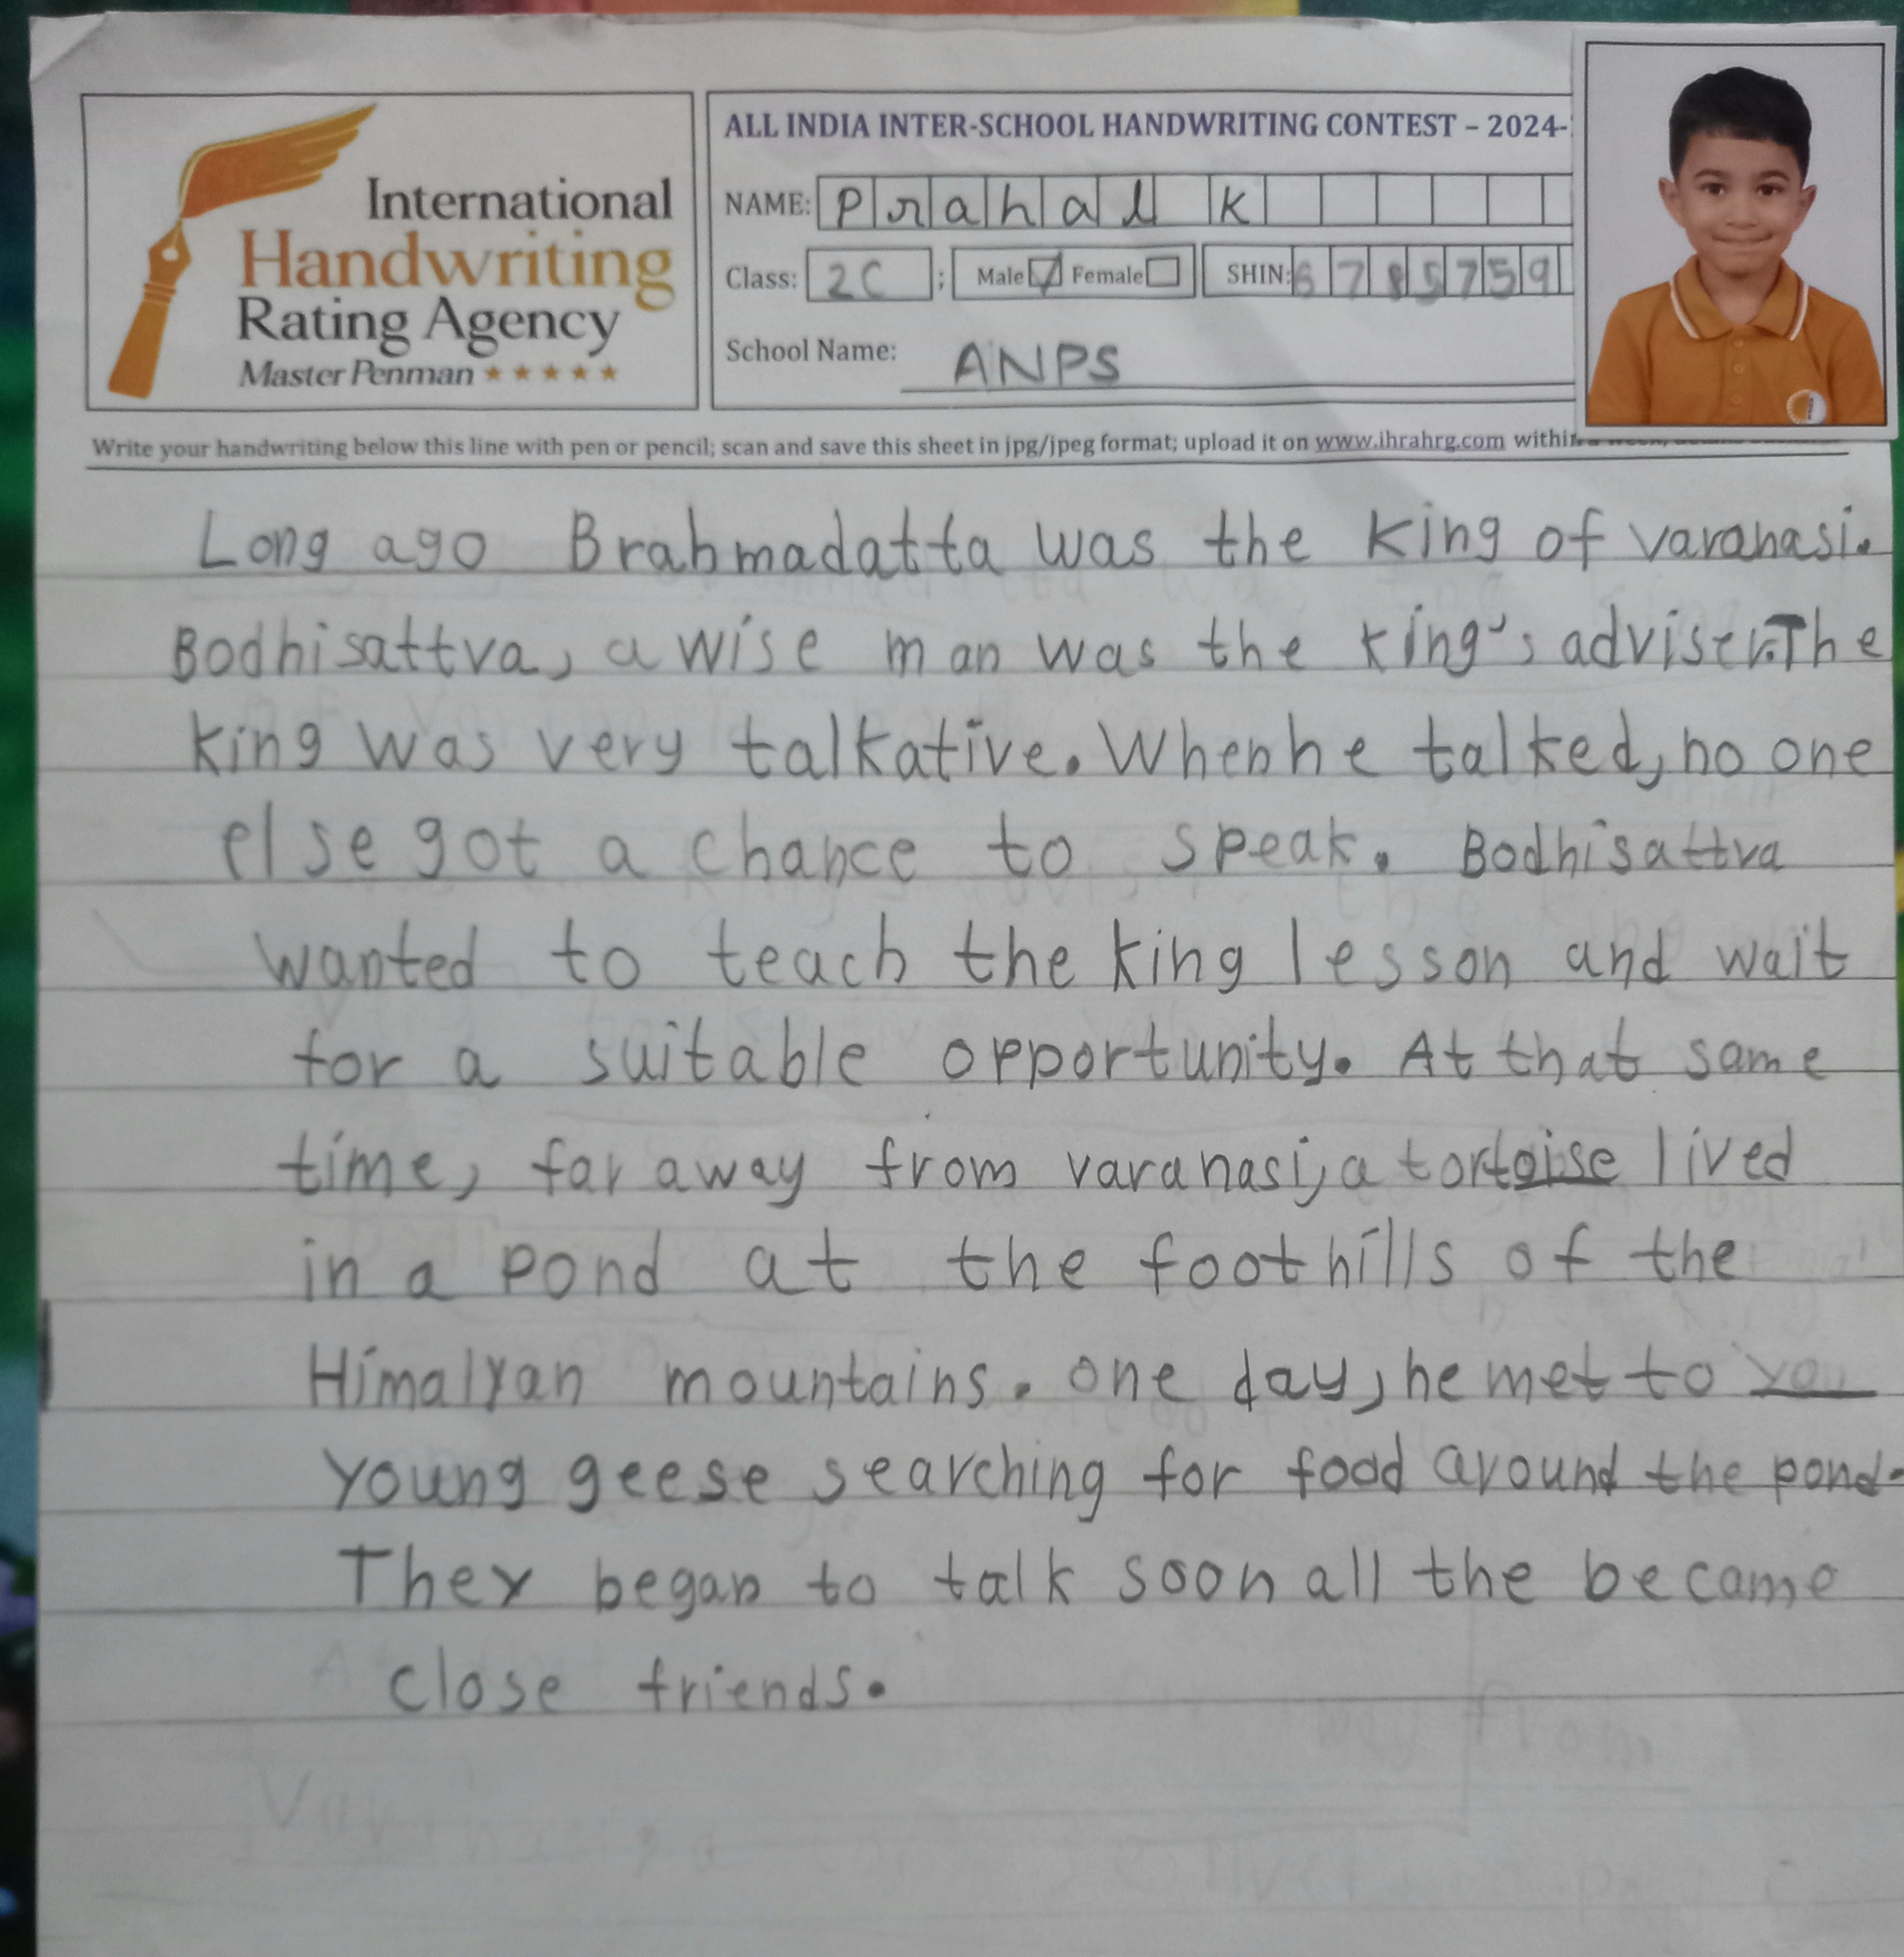 International
Handwriting
Rating Agency
Master Penman
ALL INDIA INTER-SCHOOL HANDWRITING CONTEST – 2024-
NAME: Prahal K
Class: 2C ; Male Female SHIN: 6785759
School Name: ANPS
Write your handwriting below this line with pen or pencil; scan and save this sheet in jpg/jpeg format; upload it on www.ihrahrg.com within
Long ago Brahmadatta was the King of varanasi.
Bodhisattva, a wise man was the king's adviser. The
king was very talkative. When he talked, no one
else got a chance to speak. Bodhisattva
wanted to teach the king lesson and wait
for a suitable opportunity. At that same
time, far away from varanasi, a tortoise lived
in a pond at the foothills of the
Himalyan mountains. one day, he met to you
young geese searching for food around the pond.
They began to talk soon all the became
close friends.